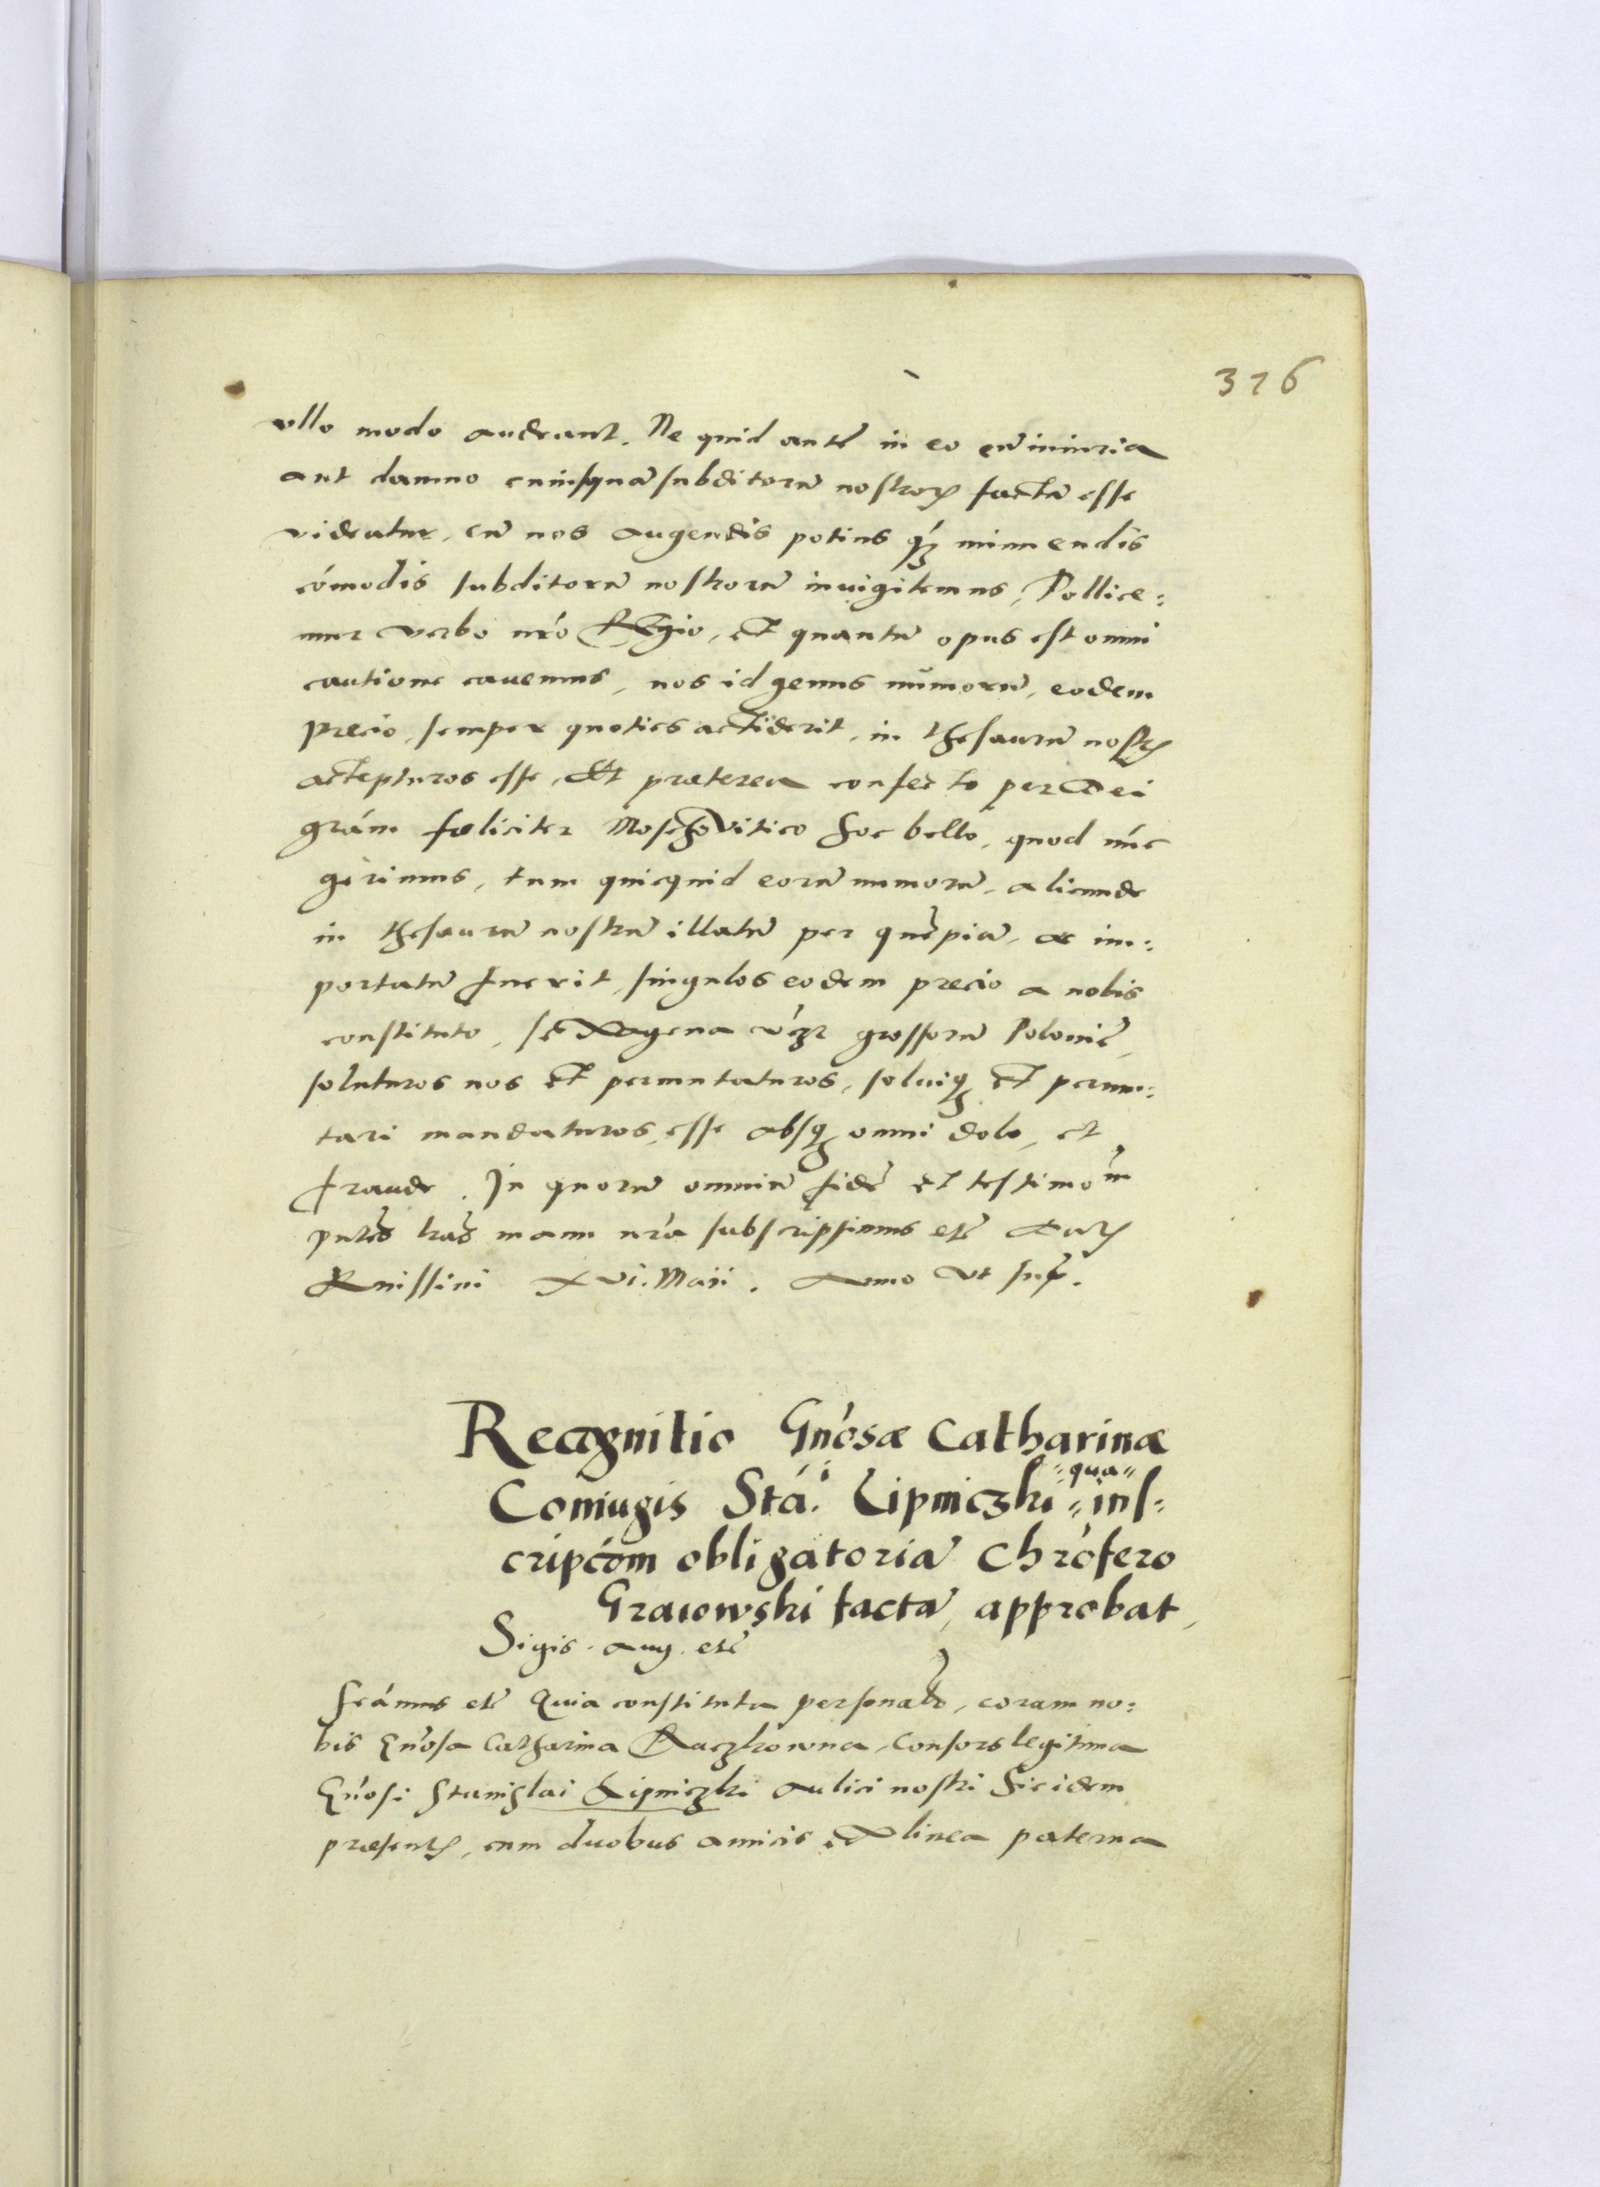 316
ullo modo audeant. Ne quid autē in eo cū iniuria
aut damno cuiusquā subditorū nostrorꝫ factū esse
videatur, cū nos augendis potius q́ꝫ minuendis
cómodis subditorū nostrorū inuigilemus, Pollice:
mur verbo nr̃o Regio, et quantū opus est omni
cautione cauemus, nos id genus nūmorū, eodem
precio, semper quoties acciderit, in thesaurū nostrꝫ
accepturos esse, Et praeterea confecto per Dei
grám fœliciter Moschovitico hoc bello, quod núc
gerimus, tum quicquid eorū numorū, alicunde
in thesaurū nostrū illatū per quēpiā, ac im:
portatū fuerit, singulos eodem precio a nobis
constituto, sexagena vꝫ grossorū Poloniē,
soluturos nos et permutaturos, soluiqꝫ et permu:
tari mandaturos, esse absqꝫ omni dolo, et
fraude. In quorū omniū fidē et testimom̄
pn̄tes̄ lr̄as̄ manu nr̃a subscripsimus etc̄ Datꝫ
Knissini XVI. Maii. Anno Vt supr̄.
Recognitio Gn̄osæ Catharinæ
qua
Coniugis Stá.i Lipniczki ins:
cripcōm obligatoriā Chrōfero
Graiowski factā, approbat,
Sigis. Aug. etc̄
Scámus etc̄ Quia constituta personalr̄, coram no:
bis Gn̄osa Catharina Raczkowna, Consors legitima
Gn̄osi Stanislai Lipniczki aulici nostri hic idem
praesentꝫ, cum duobus amicis ex linea paterna